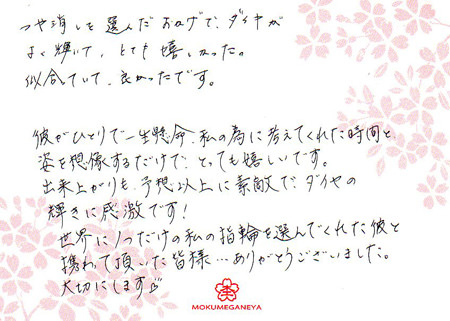 つや消しを選んだおかげで、ダイヤが
よく輝いて、とても嬉しかった。
似合ていて、良かったです。
彼がひとりで一生懸命、私の為に考えてくれた時間と
姿を想像するだけで、とっても嬉しいです。
出来上がりも、予想以上に素敵で、ダイヤの
輝きに感激です!
世界に1つだけの私の指輪を選んでくれた彼と
携わって頂いた皆様…ありがとうございました。
大切にします
MOKUMEGANEYA